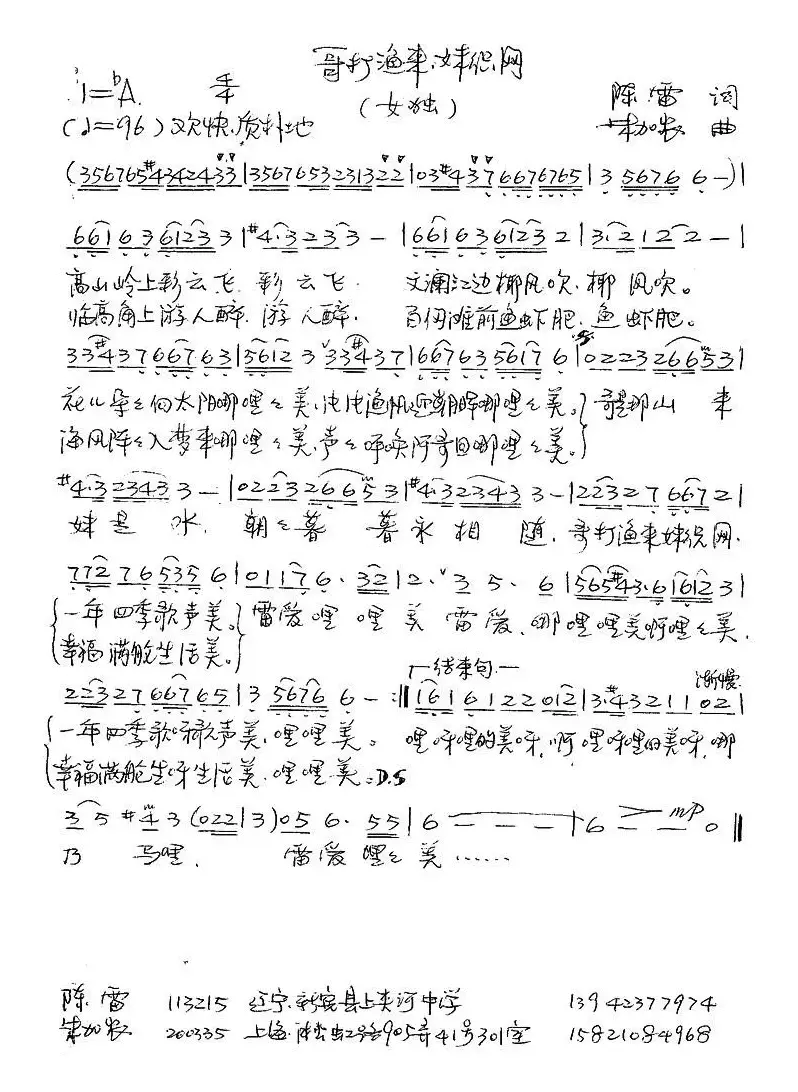 哥打渔来妹织网
1=♭A 4/4
(女独)
陈雷 词
(♩=96)欢快.质朴地
朱加农 曲
(356765#4342433|3567653231322|03#4376676765|356766-)|
6616361233|#4·3233-|6616361232|3·2122-|
高山岭上彩云飞.彩云飞. 文澜江边椰风吹.椰风吹。
临高角上游人醉.游人醉. 百仞滩前鱼虾肥.鱼虾肥。
33#43766763|56123 33#437|667635617 6|0223266#53|
花儿朵々向太阳哪哩々美,
海风阵々入梦来哪哩々美,声々呼唤阿哥回哪哩々美。
#4·323433-|022232665 3|#4·323433-|2232766 72|
妹是水, 朝々暮暮永相随,哥打渔来妹织网.
77276535 6|01176·32|2·ˇ35·6|565#43·616123|
一年四季歌声美。雷爱哩哩美雷爱,哪哩哩美啊哩々美,
幸福满舱生活美。
结束句 渐慢
2232766765|356766-:‖161612201 2|3·#4321102|
一年四季歌呀歌声美,哩哩美。哩呀哩的美呀,啊哩呀哩的美呀,哪
幸福满舱生呀生活美.哩哩美。D.S
35#43(022|3)056·55|6---|6--0‖
mp
乃马哩, 雷爱哩々美……
陈雷 113215 辽宁.新宾县上夹河中学 13942377974
朱加农 200335 上海 905弄41号301室 15821084968